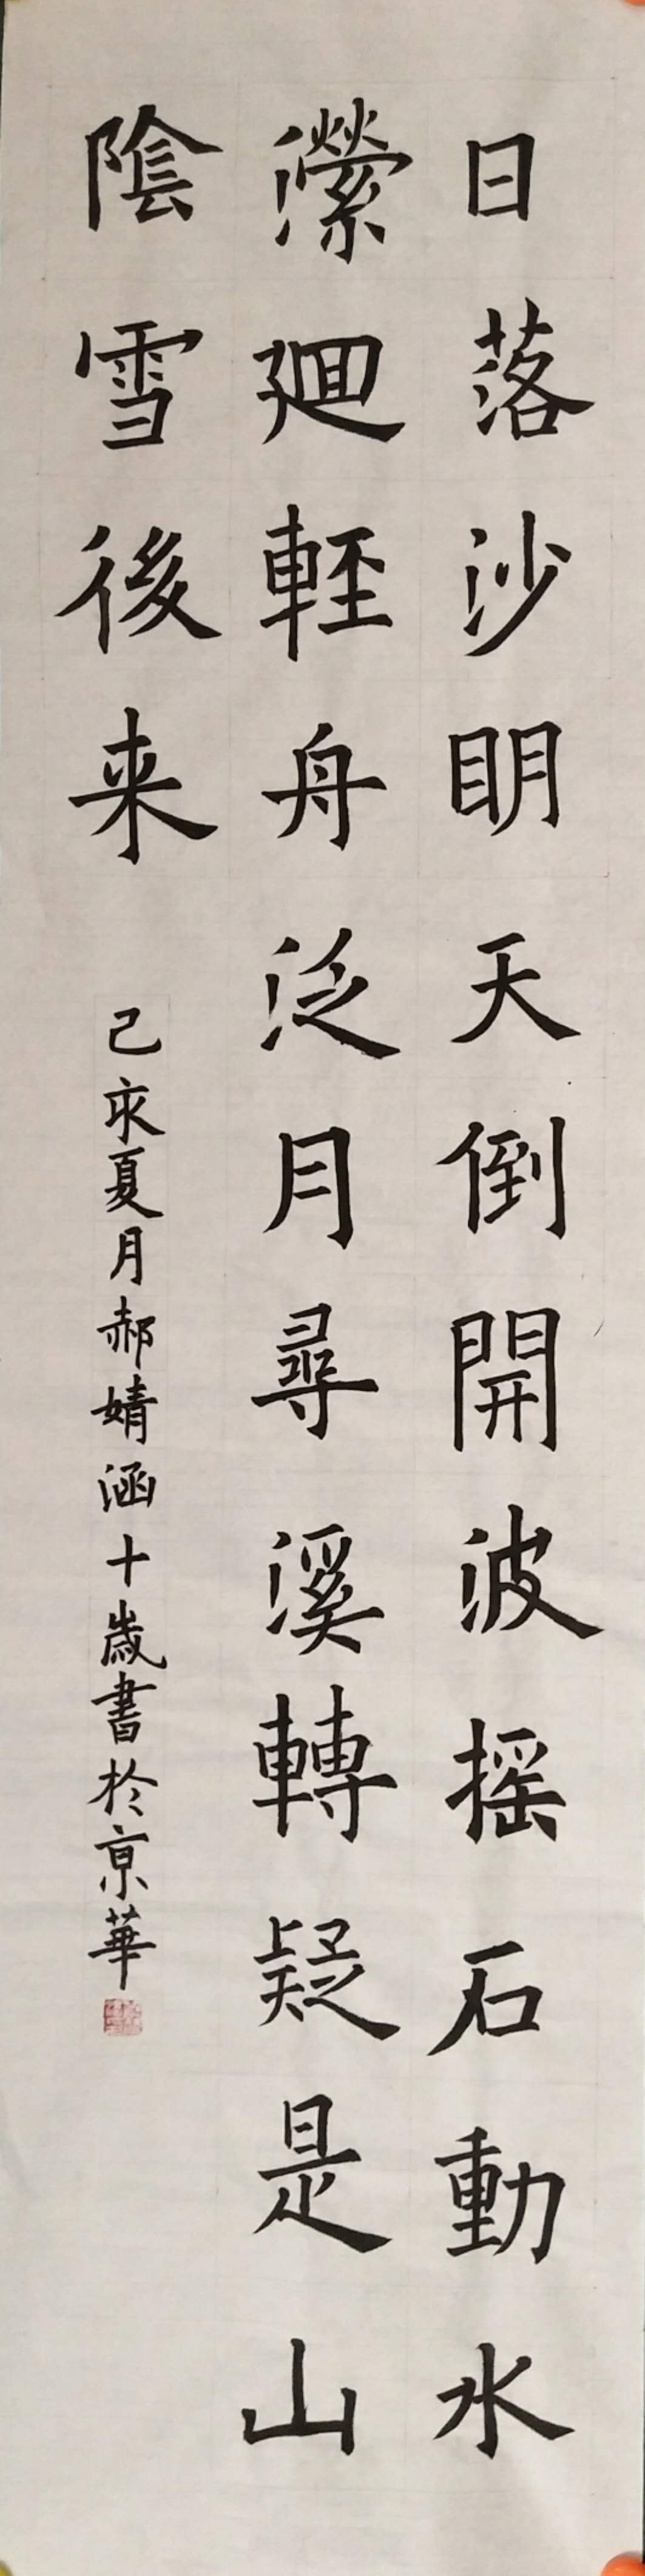 日落沙明天倒開波摇石動水
瀠迴輕舟泛月尋溪轉疑是山
陰雪後来
己亥夏月郝婧涵十歲書於京華